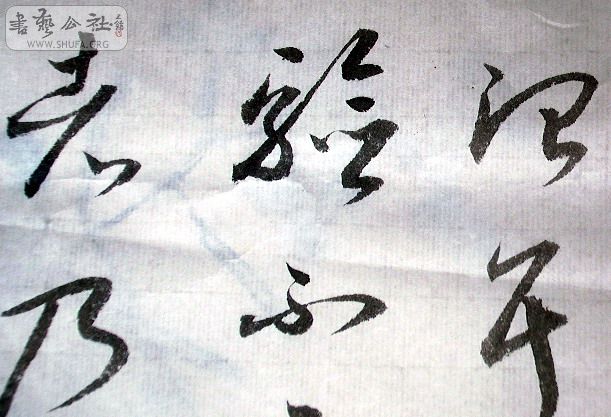 書藝公社
WWW.SHUFA.ORG
治耳
驗不
者乃